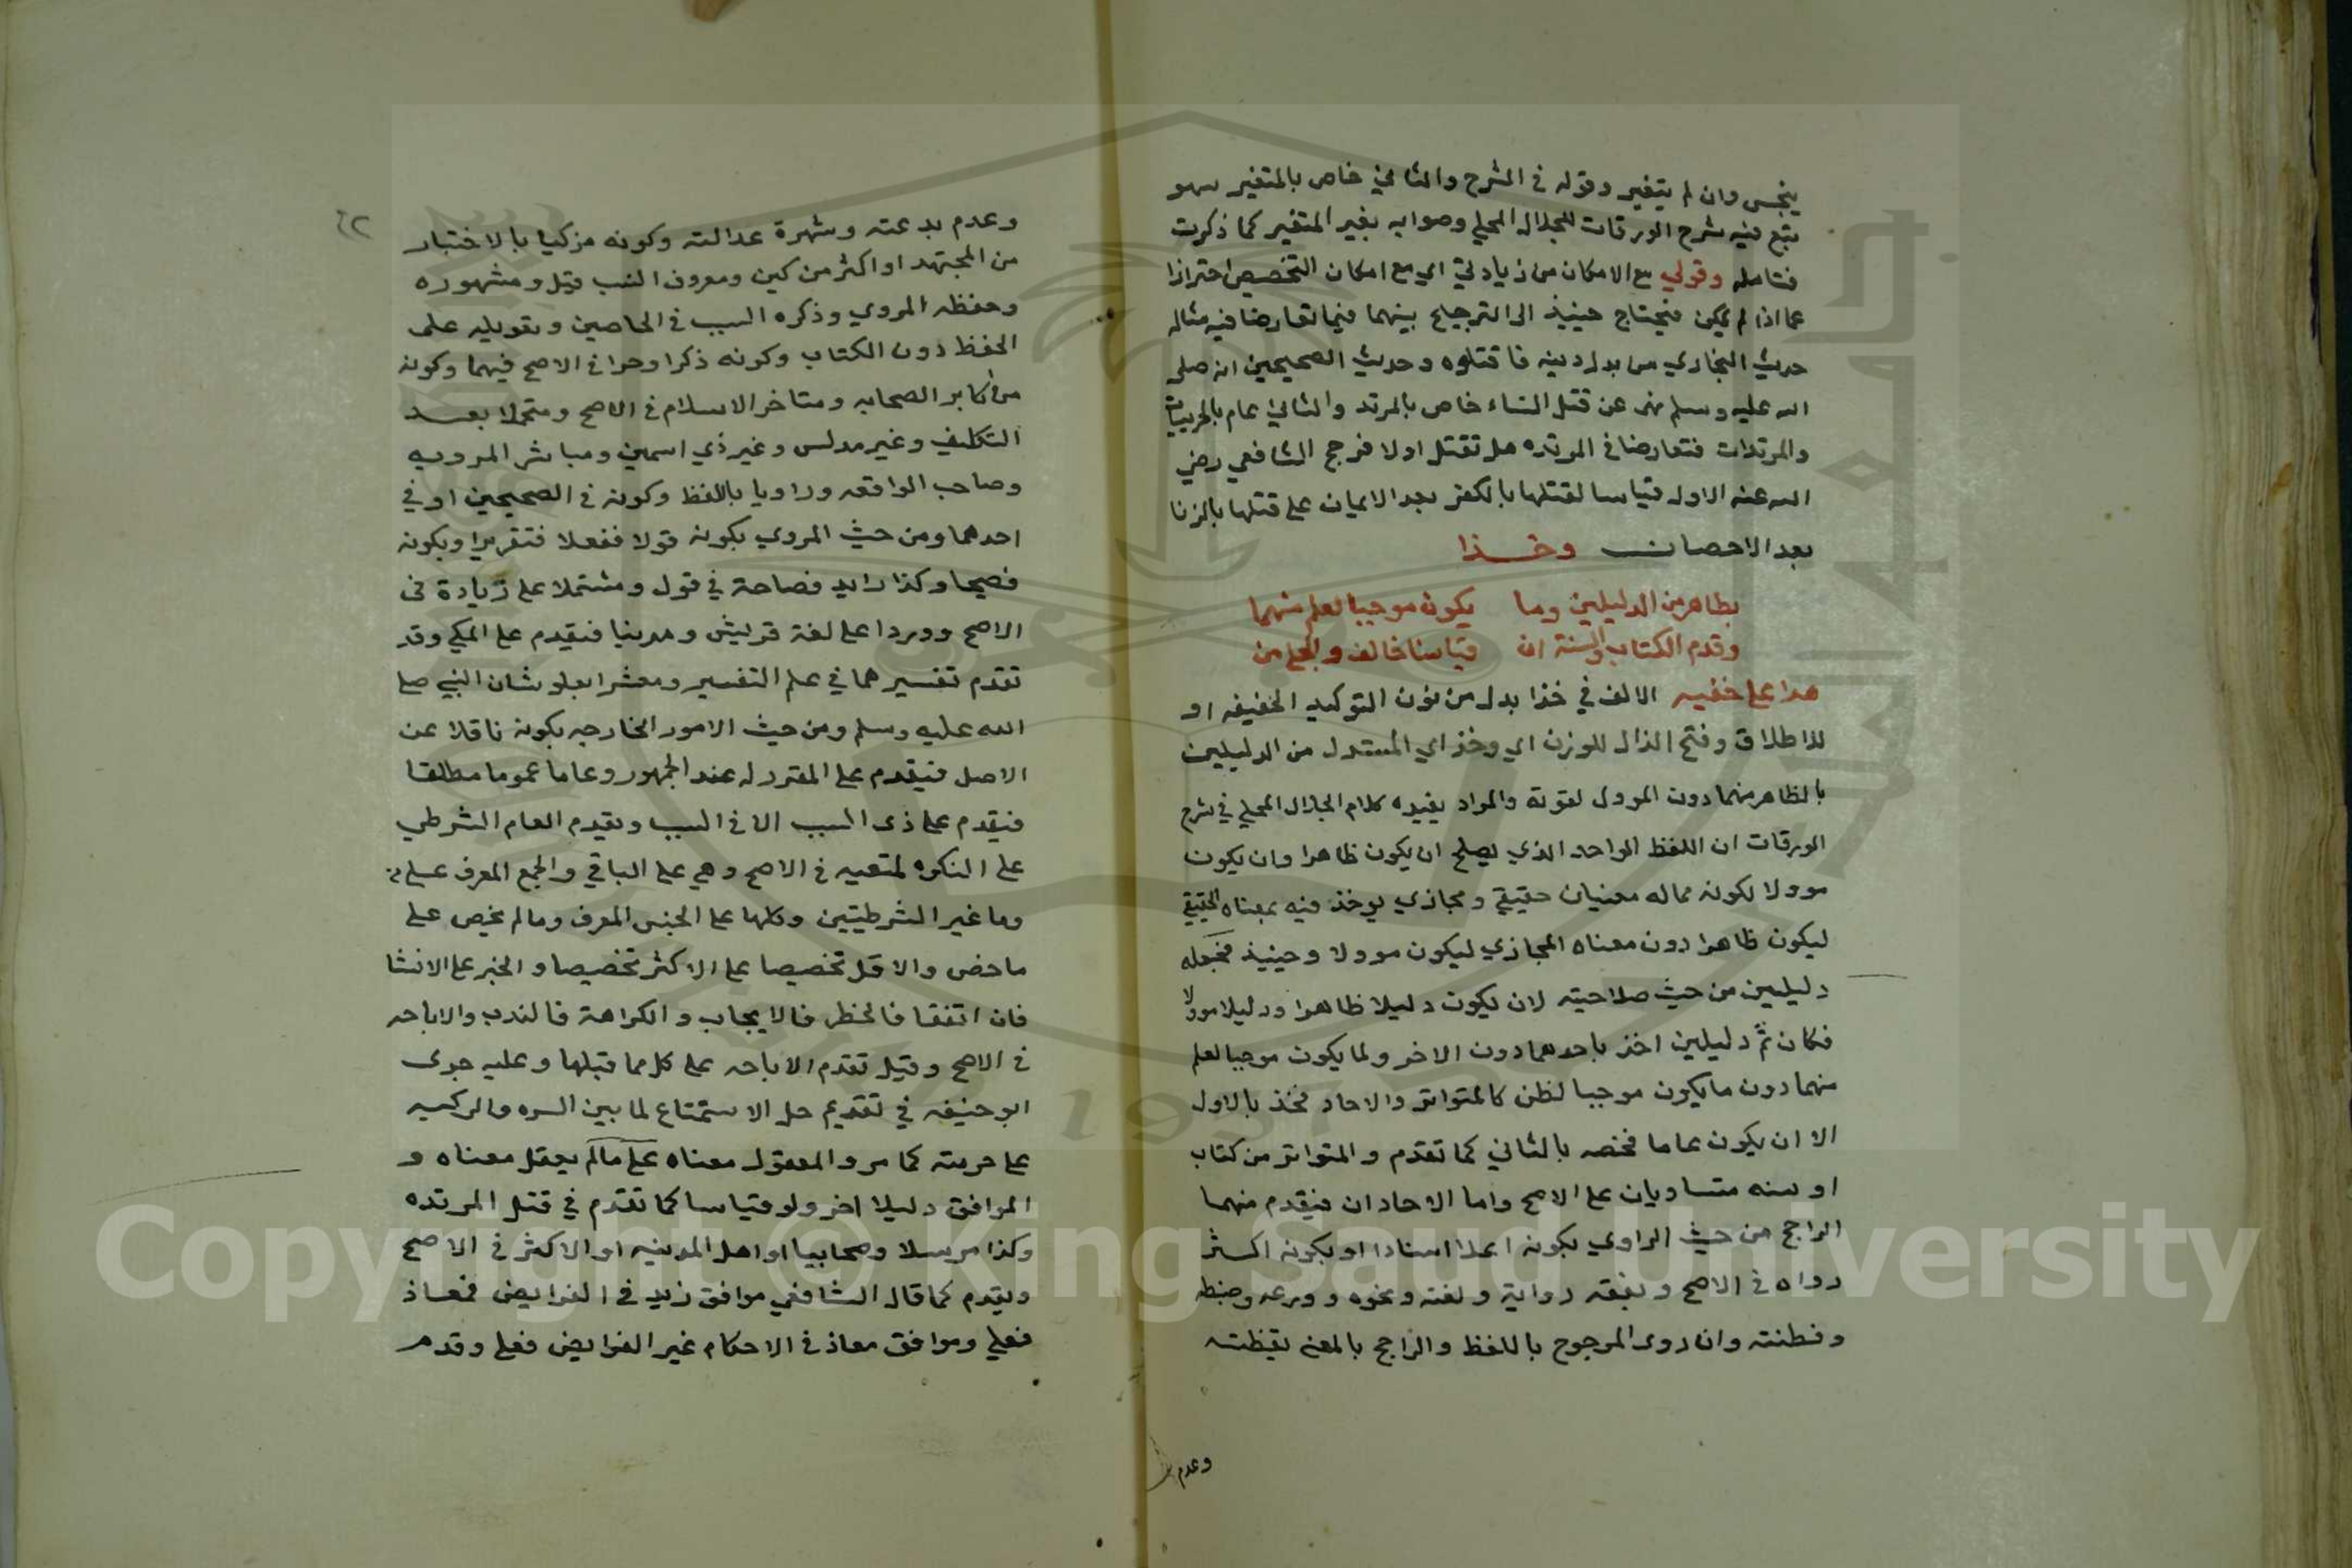 ينجس وان لم يتغير وقوله في الشرح والثاني خاص بالمتغير سهو
تبع فيه شرح الورقات للجلال المحلي وصوابه بغير المتغير كما ذكرت
فتامله وقولي مع الامكان من زيادتي اي مع امكان التخصيص احترازا
عما اذا لم يمكن فيحتاج حينيذ الى الترجيح بينهما فيما تعارضا فيه مثاله
حديث البخاري من بدل دينه فاقتلوه وحديث الصحيحين انه صلى
الله عليه وسلم نهى عن قتل النساء خاص بالمرتد والثاني عام بالحربيات
والمرتدات فتعارضا في المرتده هل تقتل اولا فرجح الشافعي رضي
الله عنه الاول قياسا لقتلها بالكفر بعد الايمان على قتلها بالزنا
بعد الاحصان وخذا
بظاهر من الدليلين وما يكون موجبا لعلم منهما
وقدم الكتاب والسنة ان قياسنا خالف والجلي من
هذا على خفيه الالف في خذا بدل من نون التوكيد الخفيفه او
للاطلاق وفتح الذال للوزن اي وخذ اي المستدل من الدليلين
بالظاهر منهما دون الموول لقوته والمراد يفيده كلام الجلال المحلي في شرح
الورقات ان اللفظ الواحد الذي يصلح ان يكون ظاهرا وان يكون
موولا لكونه مما له معنيان حقيقي ومجازي يوخذ فيه بمعناه الحقيقي
ليكون ظاهرا دون معناه المجازي ليكون موولا وحينيذ فجعله
دليلين من حيث صلاحيته لان يكون دليلا ظاهرا ودليلا موولا
فكان ثم دليلين اخذ باحدهما دون الاخر ولما يكون موجبا لعلم
منهما دون ما يكون موجبا لظن كالمتواتر والاحاد فخذ بالاول
الا ان يكون عاما فخصه بالثاني كما تقدم والمتواتر من كتاب
او سنه متساويان على الاصح واما الاحادان فيقدم منهما
الراجح من حيث الراوي بكونه اعلا اسنادا او بكونه اكثر
رواه في الاصح وبفقه رواية ولغته ونحوه وورعه وضبطه
وفطنته وان روى المرجوح باللفظ والراجح بالمعنى يقظته
وعدم
٦٢
وعدم بدعته وشهرة عدالته وكونه مزكيا بالاختبار
من المجتهد او اكثر من كين ومعروف النسب قيل ومشهوره
وحفظه المروي وذكره السبب في الخاصين وتعويله على
الحفظ دون الكتاب وكونه ذكرا وحرا في الاصح فيهما وكونه
من اكابر الصحابه ومتاخر الاسلام في الاصح ومتحملا بعد
التكليف وغير مدلس وغير ذي اسمين ومباشر المرويه
وصاحب الواقعه وراويا باللفظ وكونه في الصحيحين او في
احدهما ومن حيث المروي بكونه قولا ففعلا فتقريرا وبكونه
فصيحا وكذا زايد فصاحة في قول ومشتملا على زيادة في
الاصح ووردا على لغة قريش ومدنيا فيقدم على المكي وقد
تقدم تفسيرهما في علم التفسير ومشعرا بعلو شان النبي صلى
الله عليه وسلم ومن حيث الامور الخارجه بكونه ناقلا عن
الاصل فيقدم على المقرر له عند الجمهور وعاما عموما مطلقا
فيقدم على ذي السبب الا في السبب ويقدم العام الشرطي
على النكره لمنفيه في الاصح وهي على الباقي والجمع المعرف على من
وما غير الشرطيتين وكلها على الجنس المعرف وما لم يخص على
ما خص والاقل تخصيصا على الاكثر تخصيصا والخبر على الانشا
فان اتفقا فالحظر فالايجاب والكراهة فالندب والاباحه
في الاصح وقيل تقدم الاباحه على كل مما قبلها وعليه جرى
ابو حنيفه في تقديم حل الاستمتاع لما بين السره والركبه
على حرمته كما مر والمعقول معناه على ما لم يعقل معناه و
الموافق دليلا اخر ولو قياسا كما تقدم في قتل المرتده
وكذا مرسلا وصحابيا او اهل المدينه او الاكثر في الاصح
ويقدم كما قال الشافعي موافق زيد في الفرايض فمعاذ
فعلي وموافق معاذ في الاحكام غير الفرايض فعلي وقدم
Copyright © King Saud University
1957